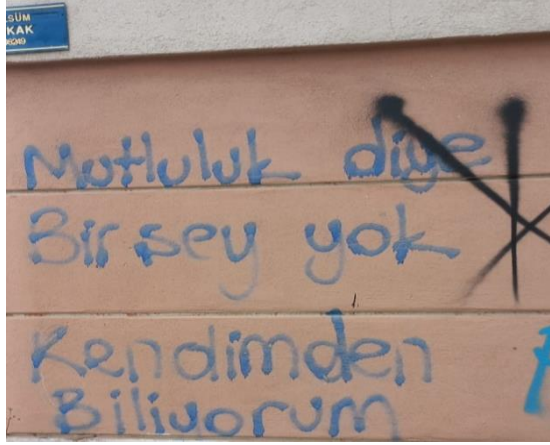 SÜM
KAK
Mutluluk diye
Bir sey yok
Kendimden
Biliyorum